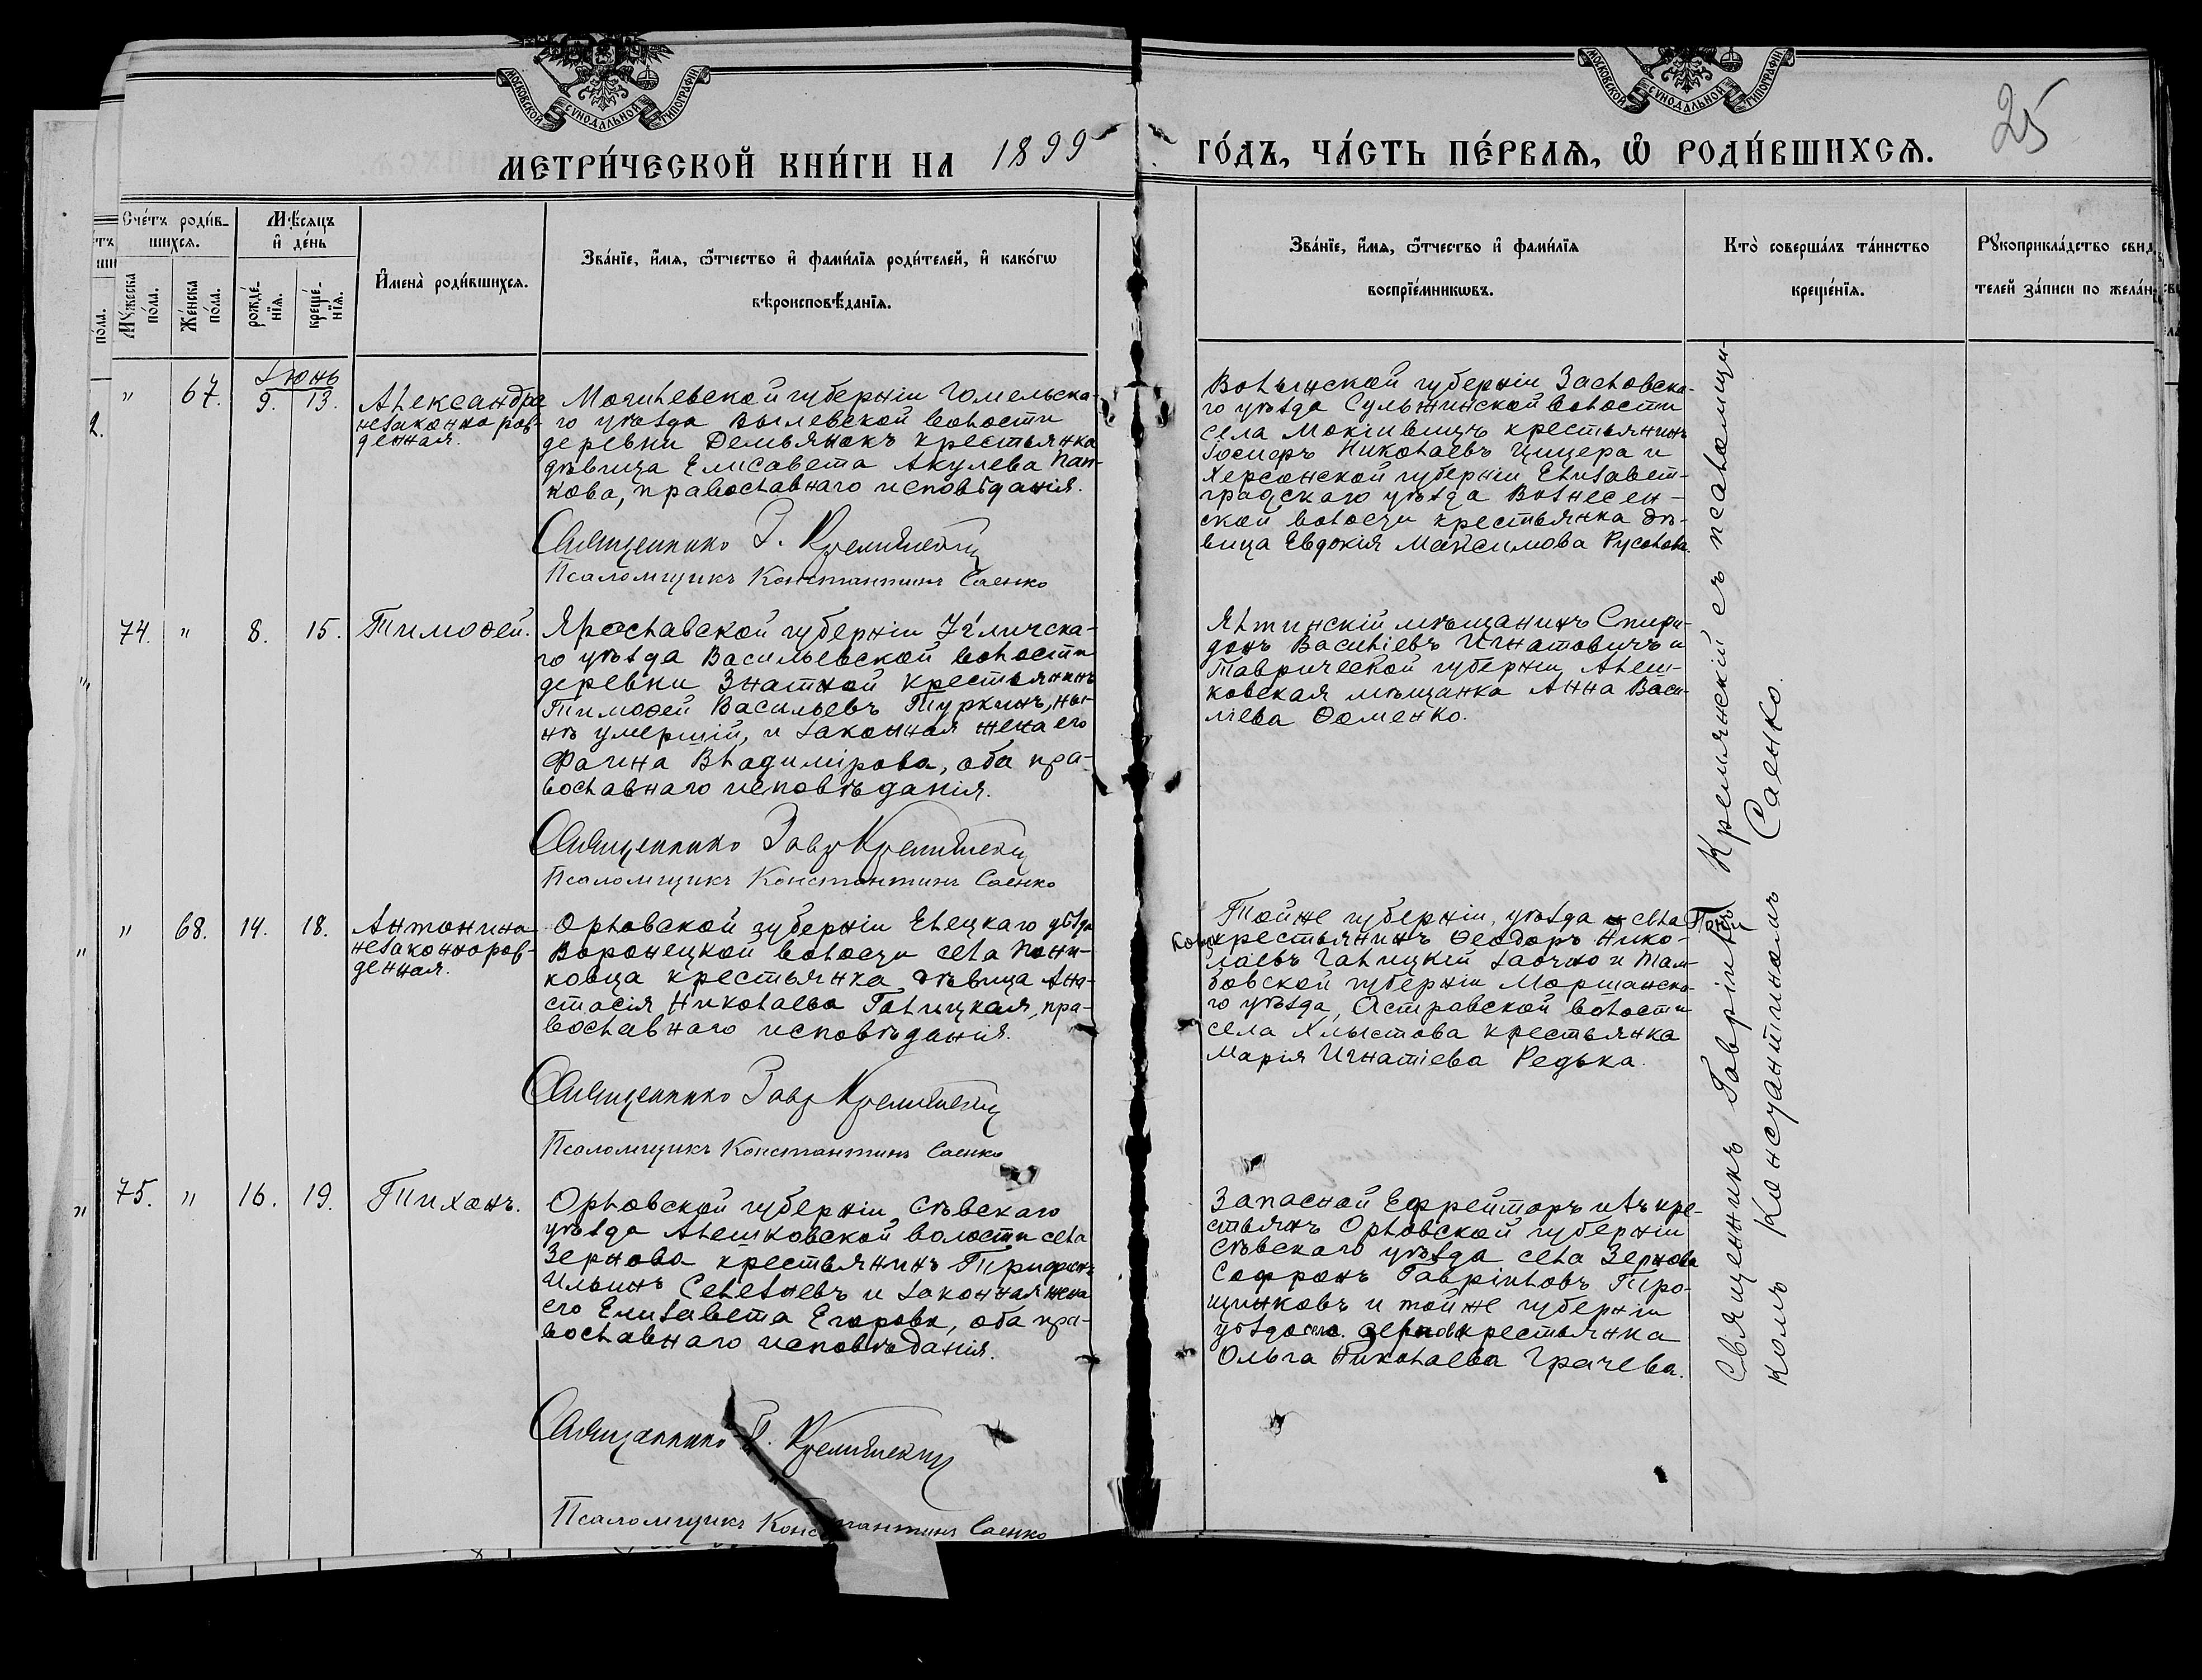 МОСКОВСКОЙ СѴНОДАЛЬНОЙ ТИПОГРАФІИ
МОСКОВСКОЙ СѴНОДАЛЬНОЙ ТИПОГРАФІИ
МЕТРИ́ЧЕСКОЙ КНИ́ГИ НА 1899
ГО́ДЪ, ЧА́СТЬ ПЕ́РВАѦ, Ѡ҆ РОДИ́ВШИХСѦ.
25
Сче́тъ роди́в-
шихсѧ.
Мѣ́сѧцъ
и҆ де́нь
Мꙋ́жеска
по́ла.
Же́нска
по́ла.
рожде́-
нїѧ.
креще́-
нїѧ.
И҆мена̀ роди́вшихсѧ.
Зва́нїе, и҆́мѧ, ѻ҆́тчество и҆ фами́лїѧ роди́телей, и҆ како́гѡ
вѣроисповѣ́данїѧ.
Зва́нїе, и҆́мѧ, ѻ҆́тчество и҆ фами́лїѧ
воспрїе́мникѡвъ.
Кто̀ соверша́лъ та́инство
креще́нїѧ.
Рꙋкоприкла́дство свид
телей за́писи по жела́н
Іюнь
" 67. 9. 13.
Александра
незаконнорож-
денная.
Могилевской губерніи Гомельска-
го уѣзда Вылевской волости
деревни Демьянокъ крестьянка
дѣвица Елисавета Акулева Пан-
кова, православнаго исповѣданія.
Священникъ Г. Кремянскій
Псаломщикъ Константинъ Саенко
Волынской губерніи Заславска-
го уѣзда Сульжинской волости
села Мокіивицъ крестьянинъ
Іосифъ Николаевъ Цицера и
Херсонской губерніи Елизавет-
градскаго уѣзда Вознесен-
ской волости крестьянка дѣ-
вица Евдокія Максимова Русолова.
74. " 8. 15. Тимоѳей.
Ярославской губерніи Угличска-
го уѣзда Васильевской волости
деревни Знатной крестьянинъ
Тимоѳей Васильевъ Туркинъ, ны-
нѣ умершій, и законная жена его
Фаина Владимірова, оба пра-
вославнаго исповѣданія.
Священникъ Гавр Кремянскій
Псаломщикъ Константинъ Саенко
Ялтинскій мѣщанинъ Спири-
донъ Василіевъ Игнатовичъ и
Таврической губерніи Алеш-
ковская мѣщанка Анна Васи-
ліева Ѳоменко.
" 68. 14. 18.
Антонина
незаконнорож-
денная.
Орловской губерніи Елецкаго уѣзда
Воронецкой волости села Пони-
ковца крестьянка дѣвица Ана-
стасія Николаева Галицкая, пра-
вославнаго исповѣданія.
Священникъ Гавр Кремянскій
Псаломщикъ Константинъ Саенко
Той же губерніи, уѣзда и села
крестьянинъ Ѳеодоръ Нико-
лаевъ Галицкій заочно и Там-
бовской губерніи Моршанска-
го уѣзда, Островской волости
села Хлыстова крестьянка
Марія Игнатіева Редька.
75. " 16. 19. Тихонъ.
Орловской губерніи Сѣвскаго
уѣзда Алешковской волости села
Зернова крестьянинъ
Ильинъ Селезневъ и законная жена
его Елизавета Егорова, оба пра-
вославнаго исповѣданія.
Священникъ Г. Кремянскій
Псаломщикъ Константинъ Саенко
Запасной Ефрейторъ изъ кре-
стьянъ Орловской губерніи
Сѣвскаго уѣзда села Зернова
Софронъ Гавріиловъ Про-
щинковъ и той же губерніи
уѣзда села Зернова крестьянка
Ольга Николаева Грачева.
Священникъ Гавріилъ Кремянскій съ псаломщи-
комъ Константиномъ Саенко.